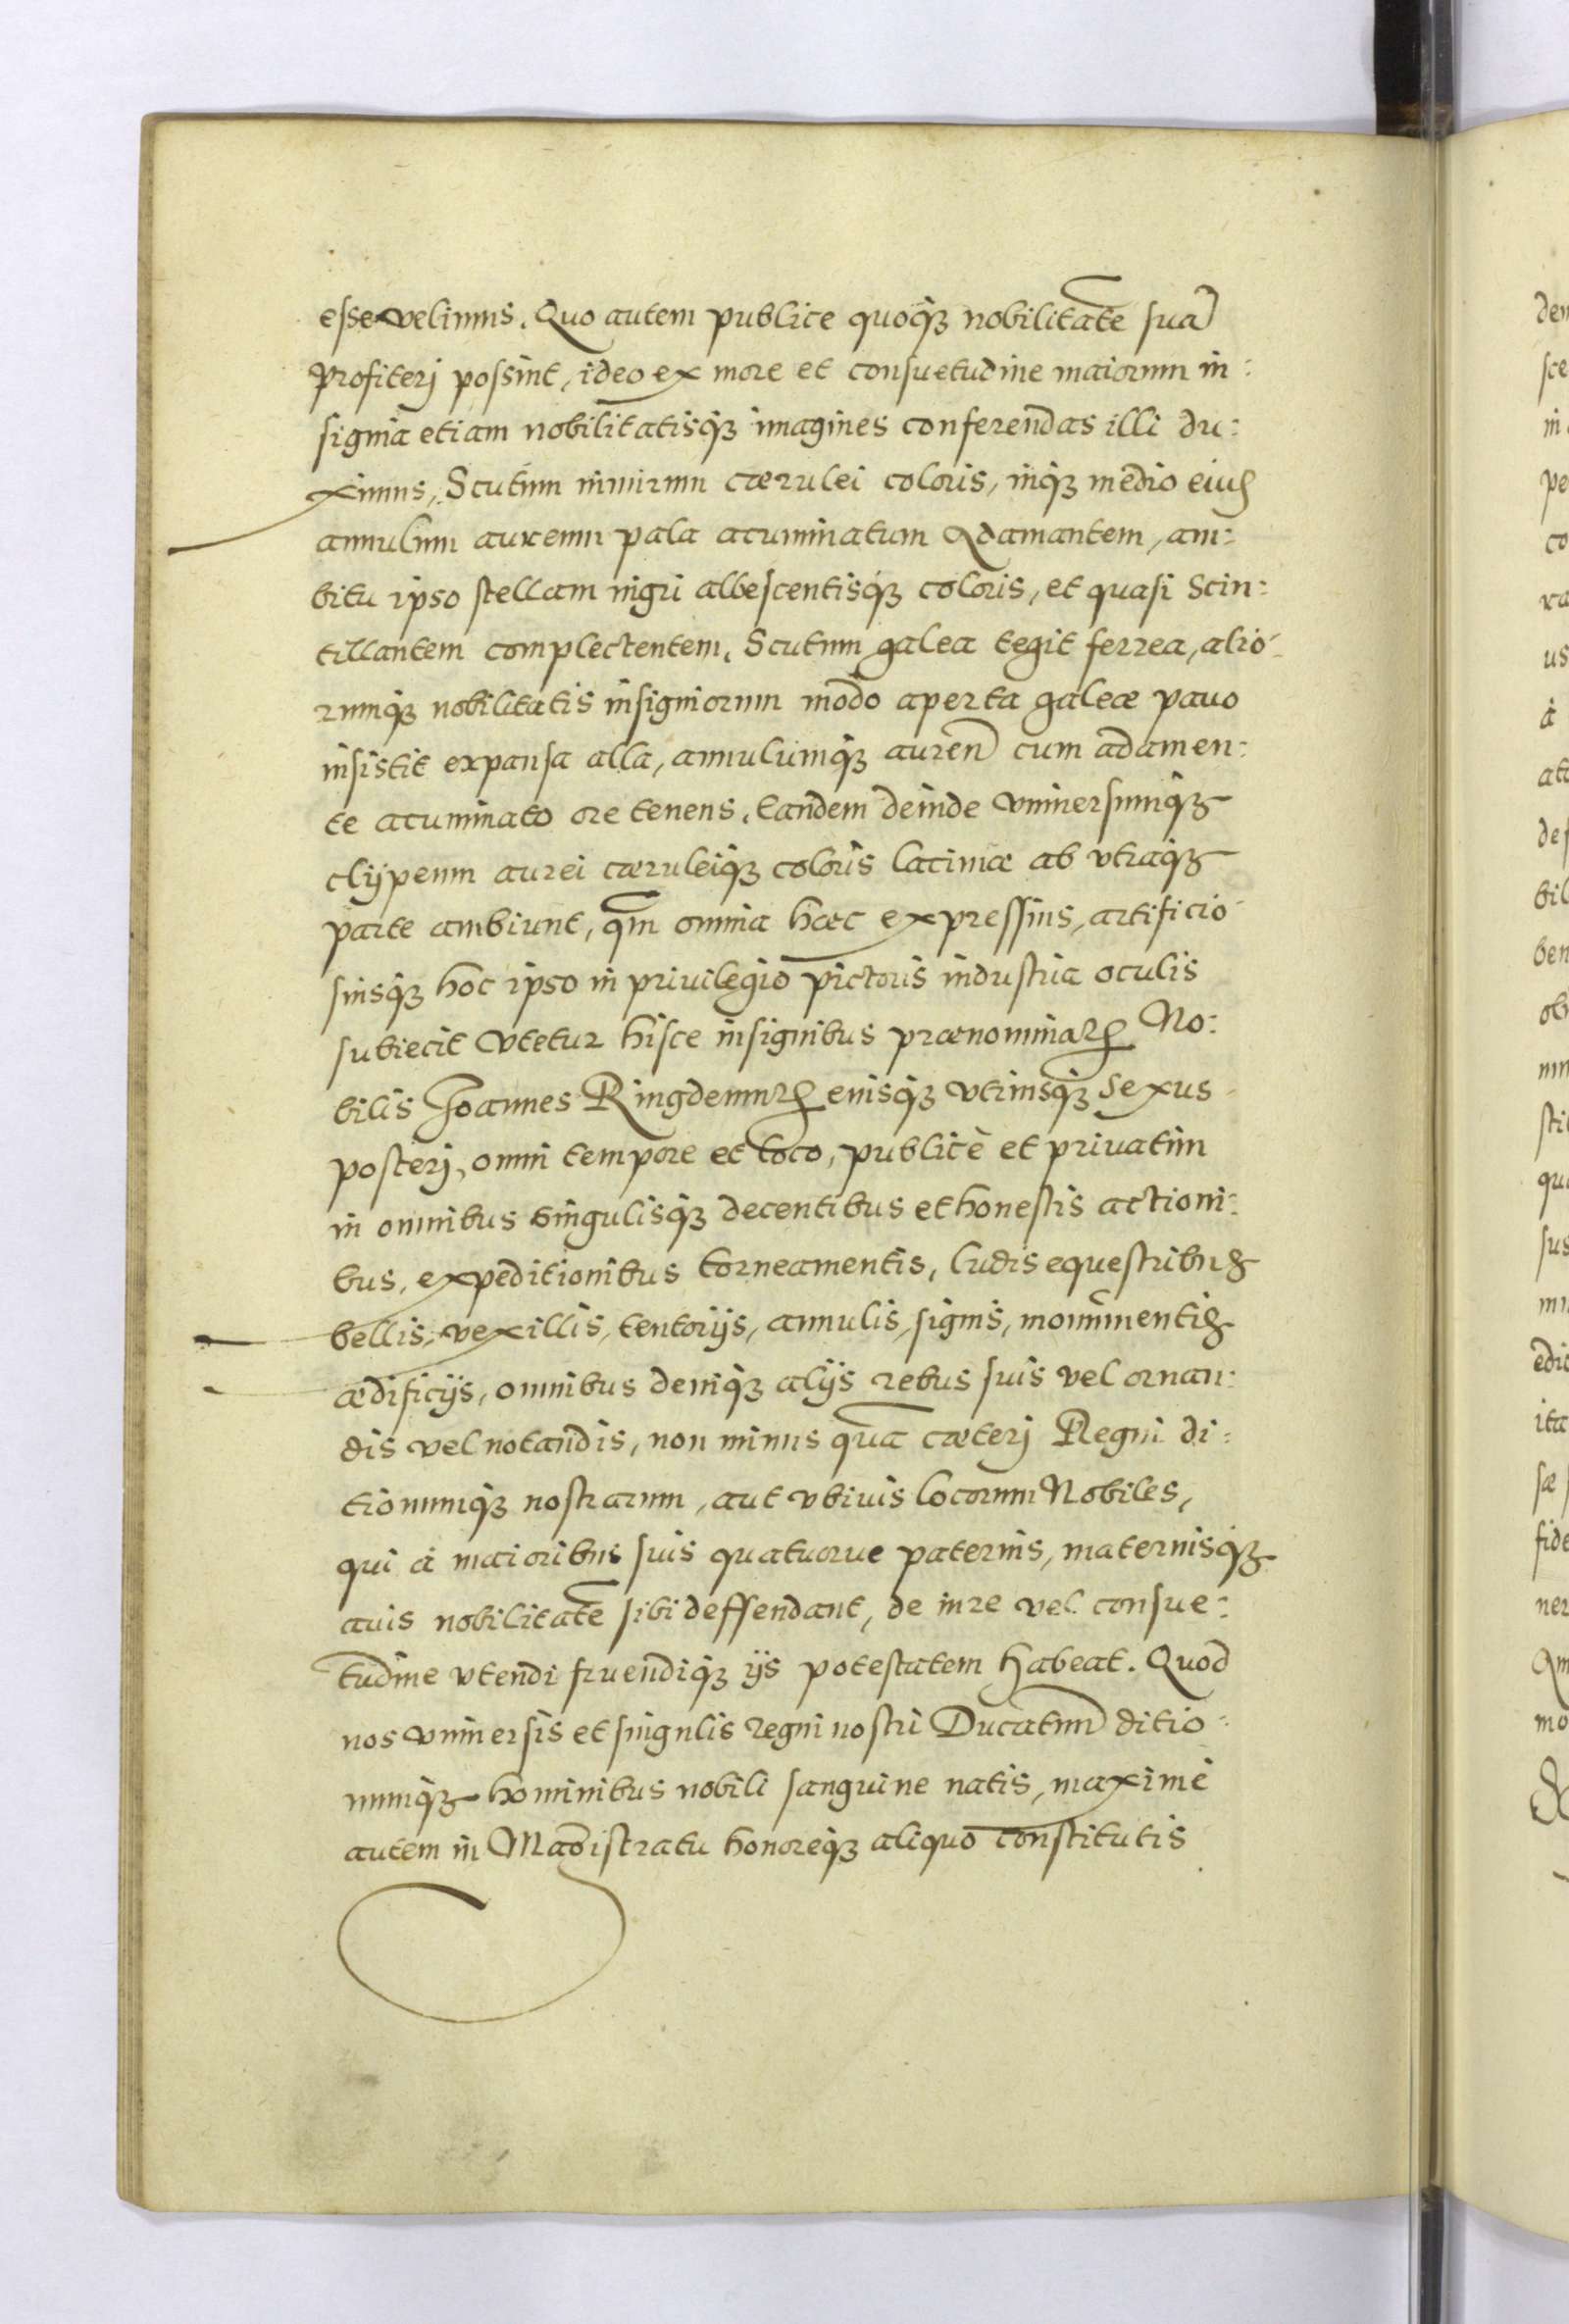 esse velimus. Quo autem publice quoqꝫ nobilitate suã
Profiterj possint, ideo ex more et consuetudine maiorum in:
signia etiam nobilitatisqꝫ imagines conferendas illi du:
ximus, Scutum nimirum cærulei coloris, inqꝫ medio eius
annulum aureum pala acuminatum Adamantem, am:
bitu ipso stellam nigri albescentisqꝫ coloris, et quasi Scin:
tillantem complectentem. Scutum galea tegit ferrea, alio-
rumqꝫ nobilitatis insigniorum modo aperta galeæ pavo
insistit expansa alla, annulumqꝫ aureũ cum adamen:
te acuminato ore tenens. tandem deinde vniuersumqꝫ
clijpeum aurei cæruleiqꝫ coloris laciniæ ab vtraqꝫ
parte ambiunt, qm̃ omnia hæc expressius, artificio-
siusqꝫ hoc ipso in priuilegio pictoris industria oculis
subiecit Vtetur hisce insignibus prænominatꝰ No:
bilis Joannes Ringdemutꝰ eiusqꝫ vtriusqꝫ Sexus
posterj, omni tempore et loco, publicè et priuatim
in omnibus singulisqꝫ decentibus et honestis actioni:
bus, expeditionibus torneamentis, ludis equestribus
bellis, vexillis, tentorijs, annulis, signis, monumentis
ædificijs, omnibus deniqꝫ alijs rebus suis vel ornan:
dis vel notandis, non minus quã cæterj Regni di:
tionumqꝫ nostrarum, aut vbiuis locorum Nobiles,
qui à maioribus suis quatuorue paternis, maternisqꝫ
auis nobilitatẽ sibi deffendant, de iure vel consue:
tudine vtendi fruendiqꝫ ijs potestatem habeat. Quod
nos vniuersis et singulis regni nostri Ducatuũ ditio-
numqꝫ hominibus nobili sanguine natis, maximè
autem in Magistratu honoreqꝫ aliquo constitutis